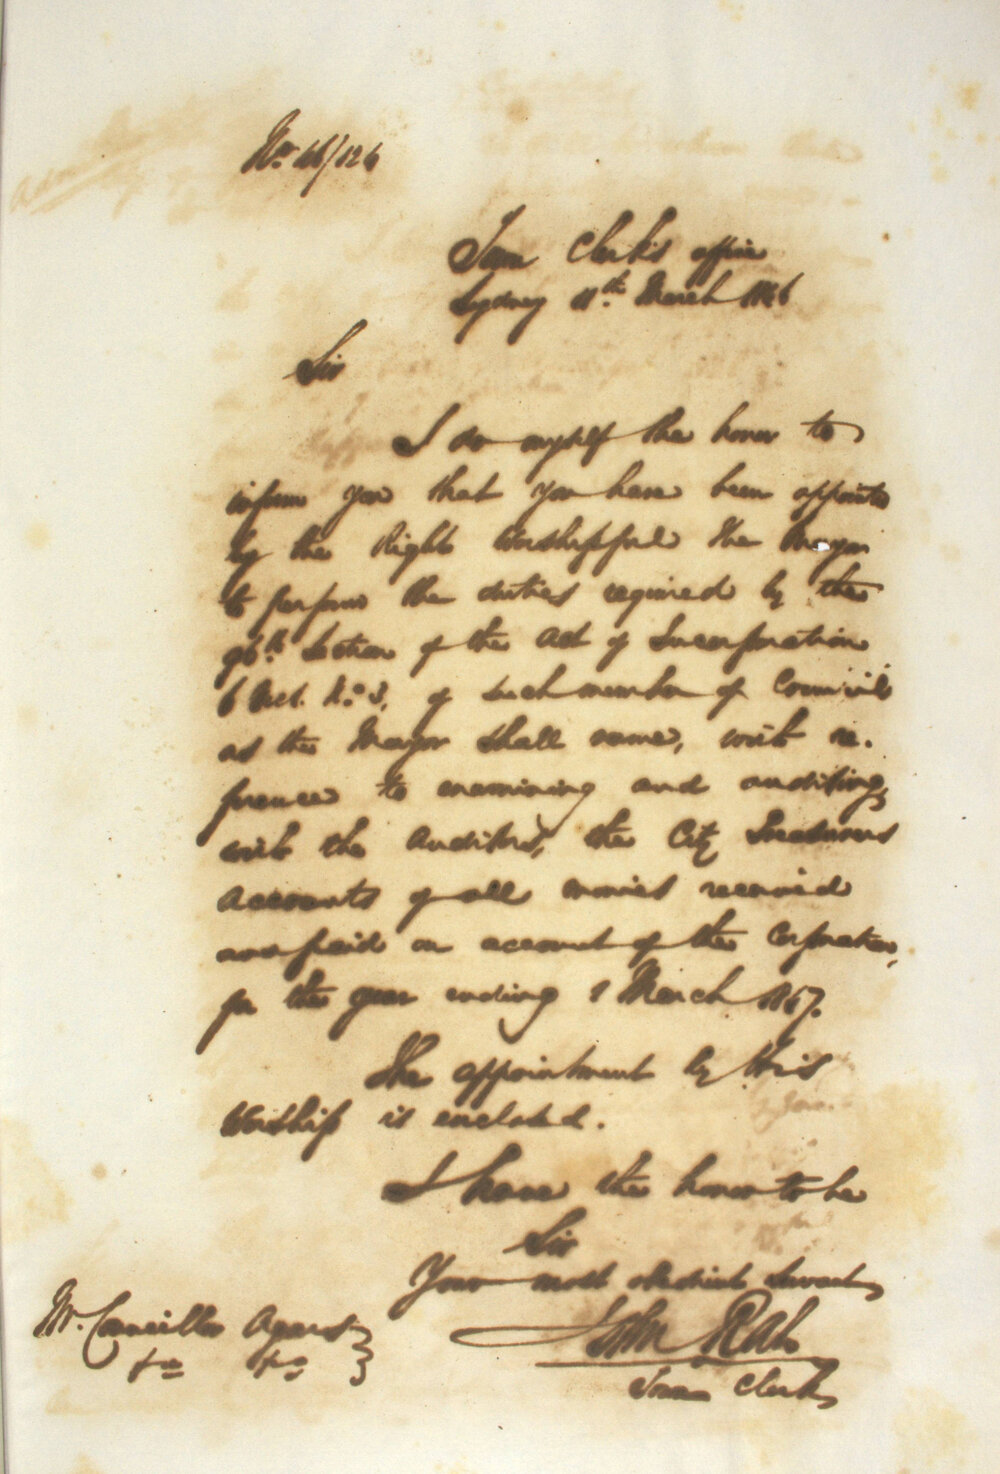 No. 46/124
Town Clerk's office
Sydney 11th March 1846
Sir
I do myself the honor to
inform you that you have been appointed
by the Right Worshipful the Mayor
to perform the duties required by the
96th Section of the Act of Incorporation
6 Vict. No. 3, of such member of Council
as the Mayor shall name, with re.
ference to examining and auditing,
with the Auditors, the City Treasurers
Accounts of all monies received
and paid on account of the Corporation,
for the year ending 1 March 1847.
The appointment by His
Worship is enclosed.
I have the honor to be
Sir
Your most obedient Servant
John Rae
Town Clerk
Mr. Councillor